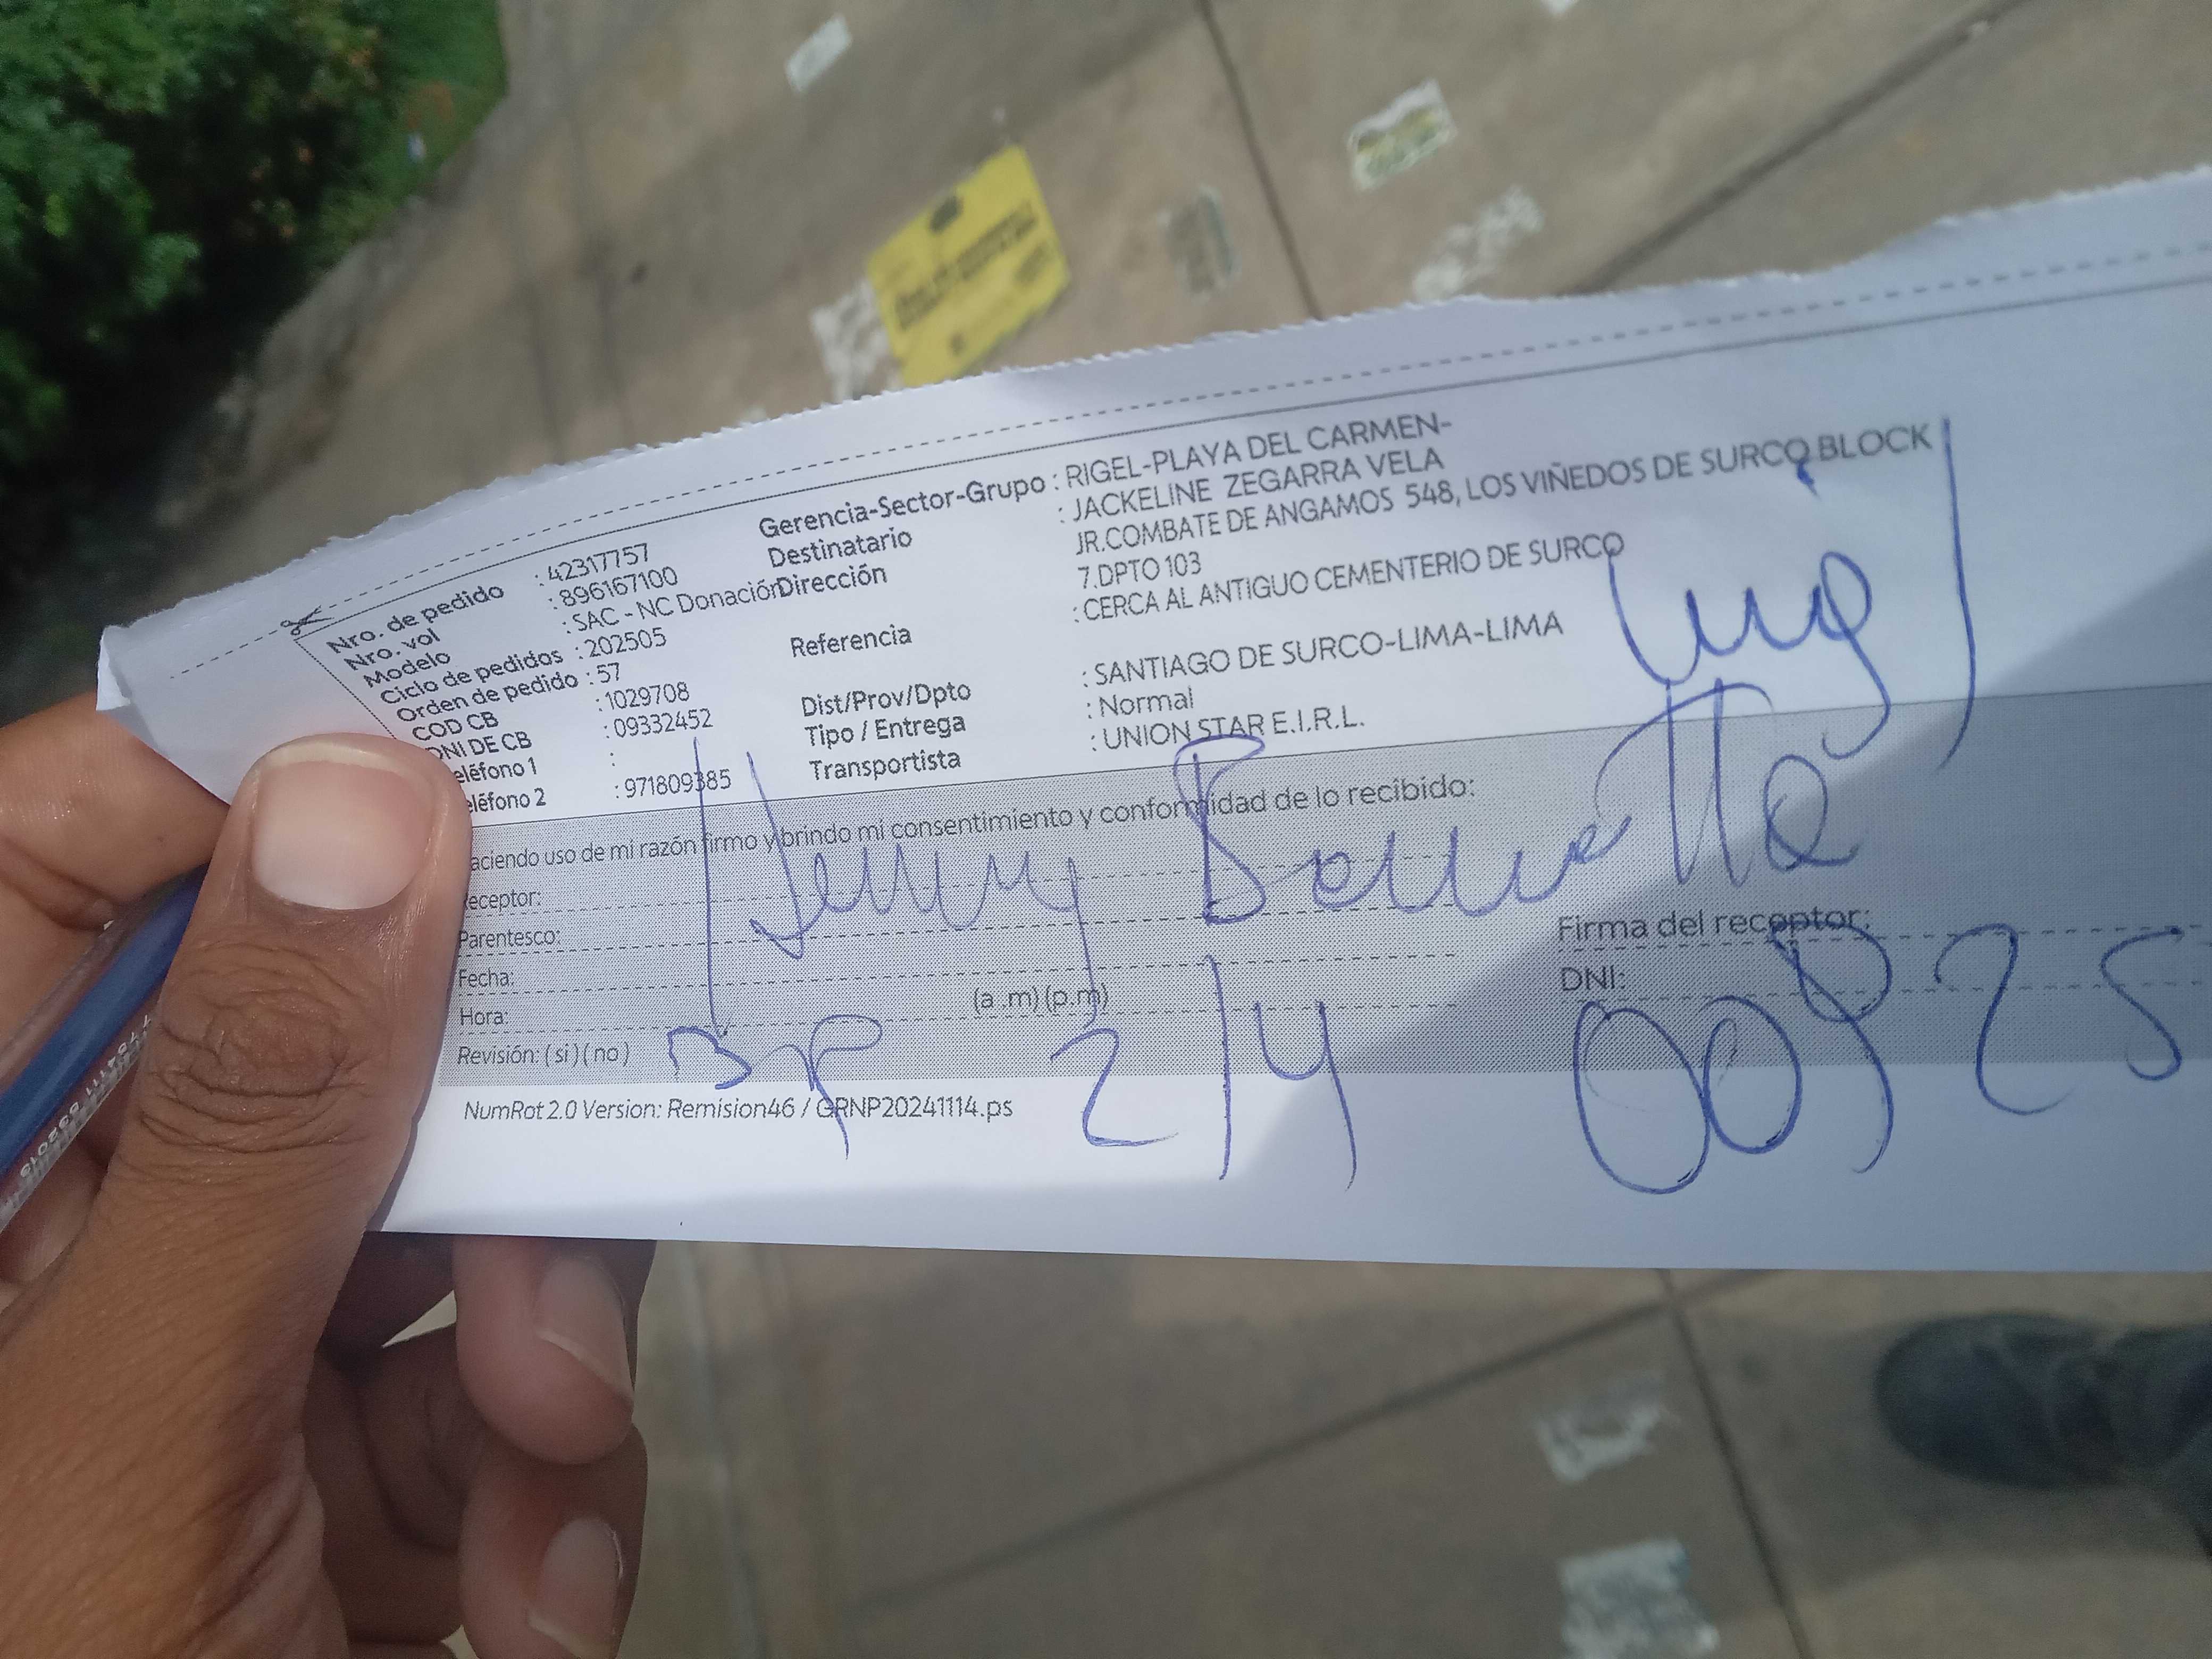 Nro. de pedido : 42317757
Nro. vol : 896167100
Modelo : SAC - NC Donación
Ciclo de pedidos : 202505
Orden de pedido : 57
COD CB : 1029708
DNI DE CB : 09332452
eléfono 1 :
eléfono 2 : 971809385
Gerencia-Sector-Grupo : RIGEL-PLAYA DEL CARMEN-
Destinatario : JACKELINE ZEGARRA VELA
Dirección JR.COMBATE DE ANGAMOS 548, LOS VIÑEDOS DE SURCO BLOCK
7.DPTO 103
Referencia : CERCA AL ANTIGUO CEMENTERIO DE SURCO
Dist/Prov/Dpto : SANTIAGO DE SURCO-LIMA-LIMA
Tipo / Entrega : Normal
Transportista : UNION STAR E.I.R.L.
aciendo uso de mi razón firmo y brindo mi consentimiento y conformidad de lo recibido:
Receptor:
Parentesco:
Fecha:
Hora: (a .m) (p.m)
Revisión: ( si ) ( no )
Firma del receptor:
DNI:
2/4
NumRot 2.0 Version: Remision46 / GRNP20241114.ps